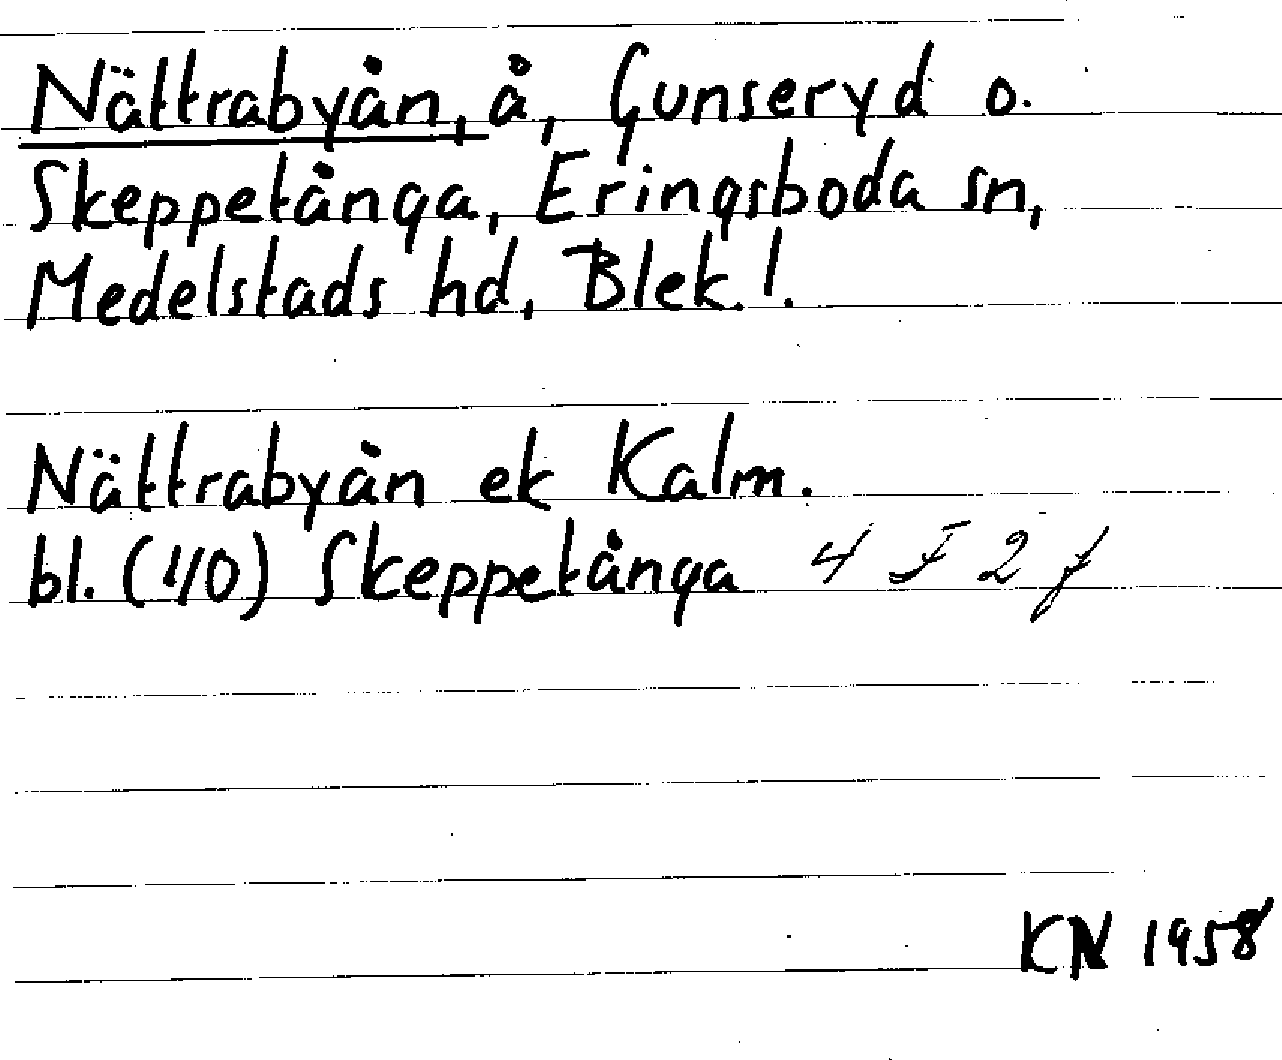 Nättrabyån, å, Gunseryd o.
Skeppetånga, Eringsboda sn,
Medelstads hd, Blek.!.
Nättrabyån ek Kalm.
bl. (1/0) Skeppetånga 4 F 2 f
KN 1958